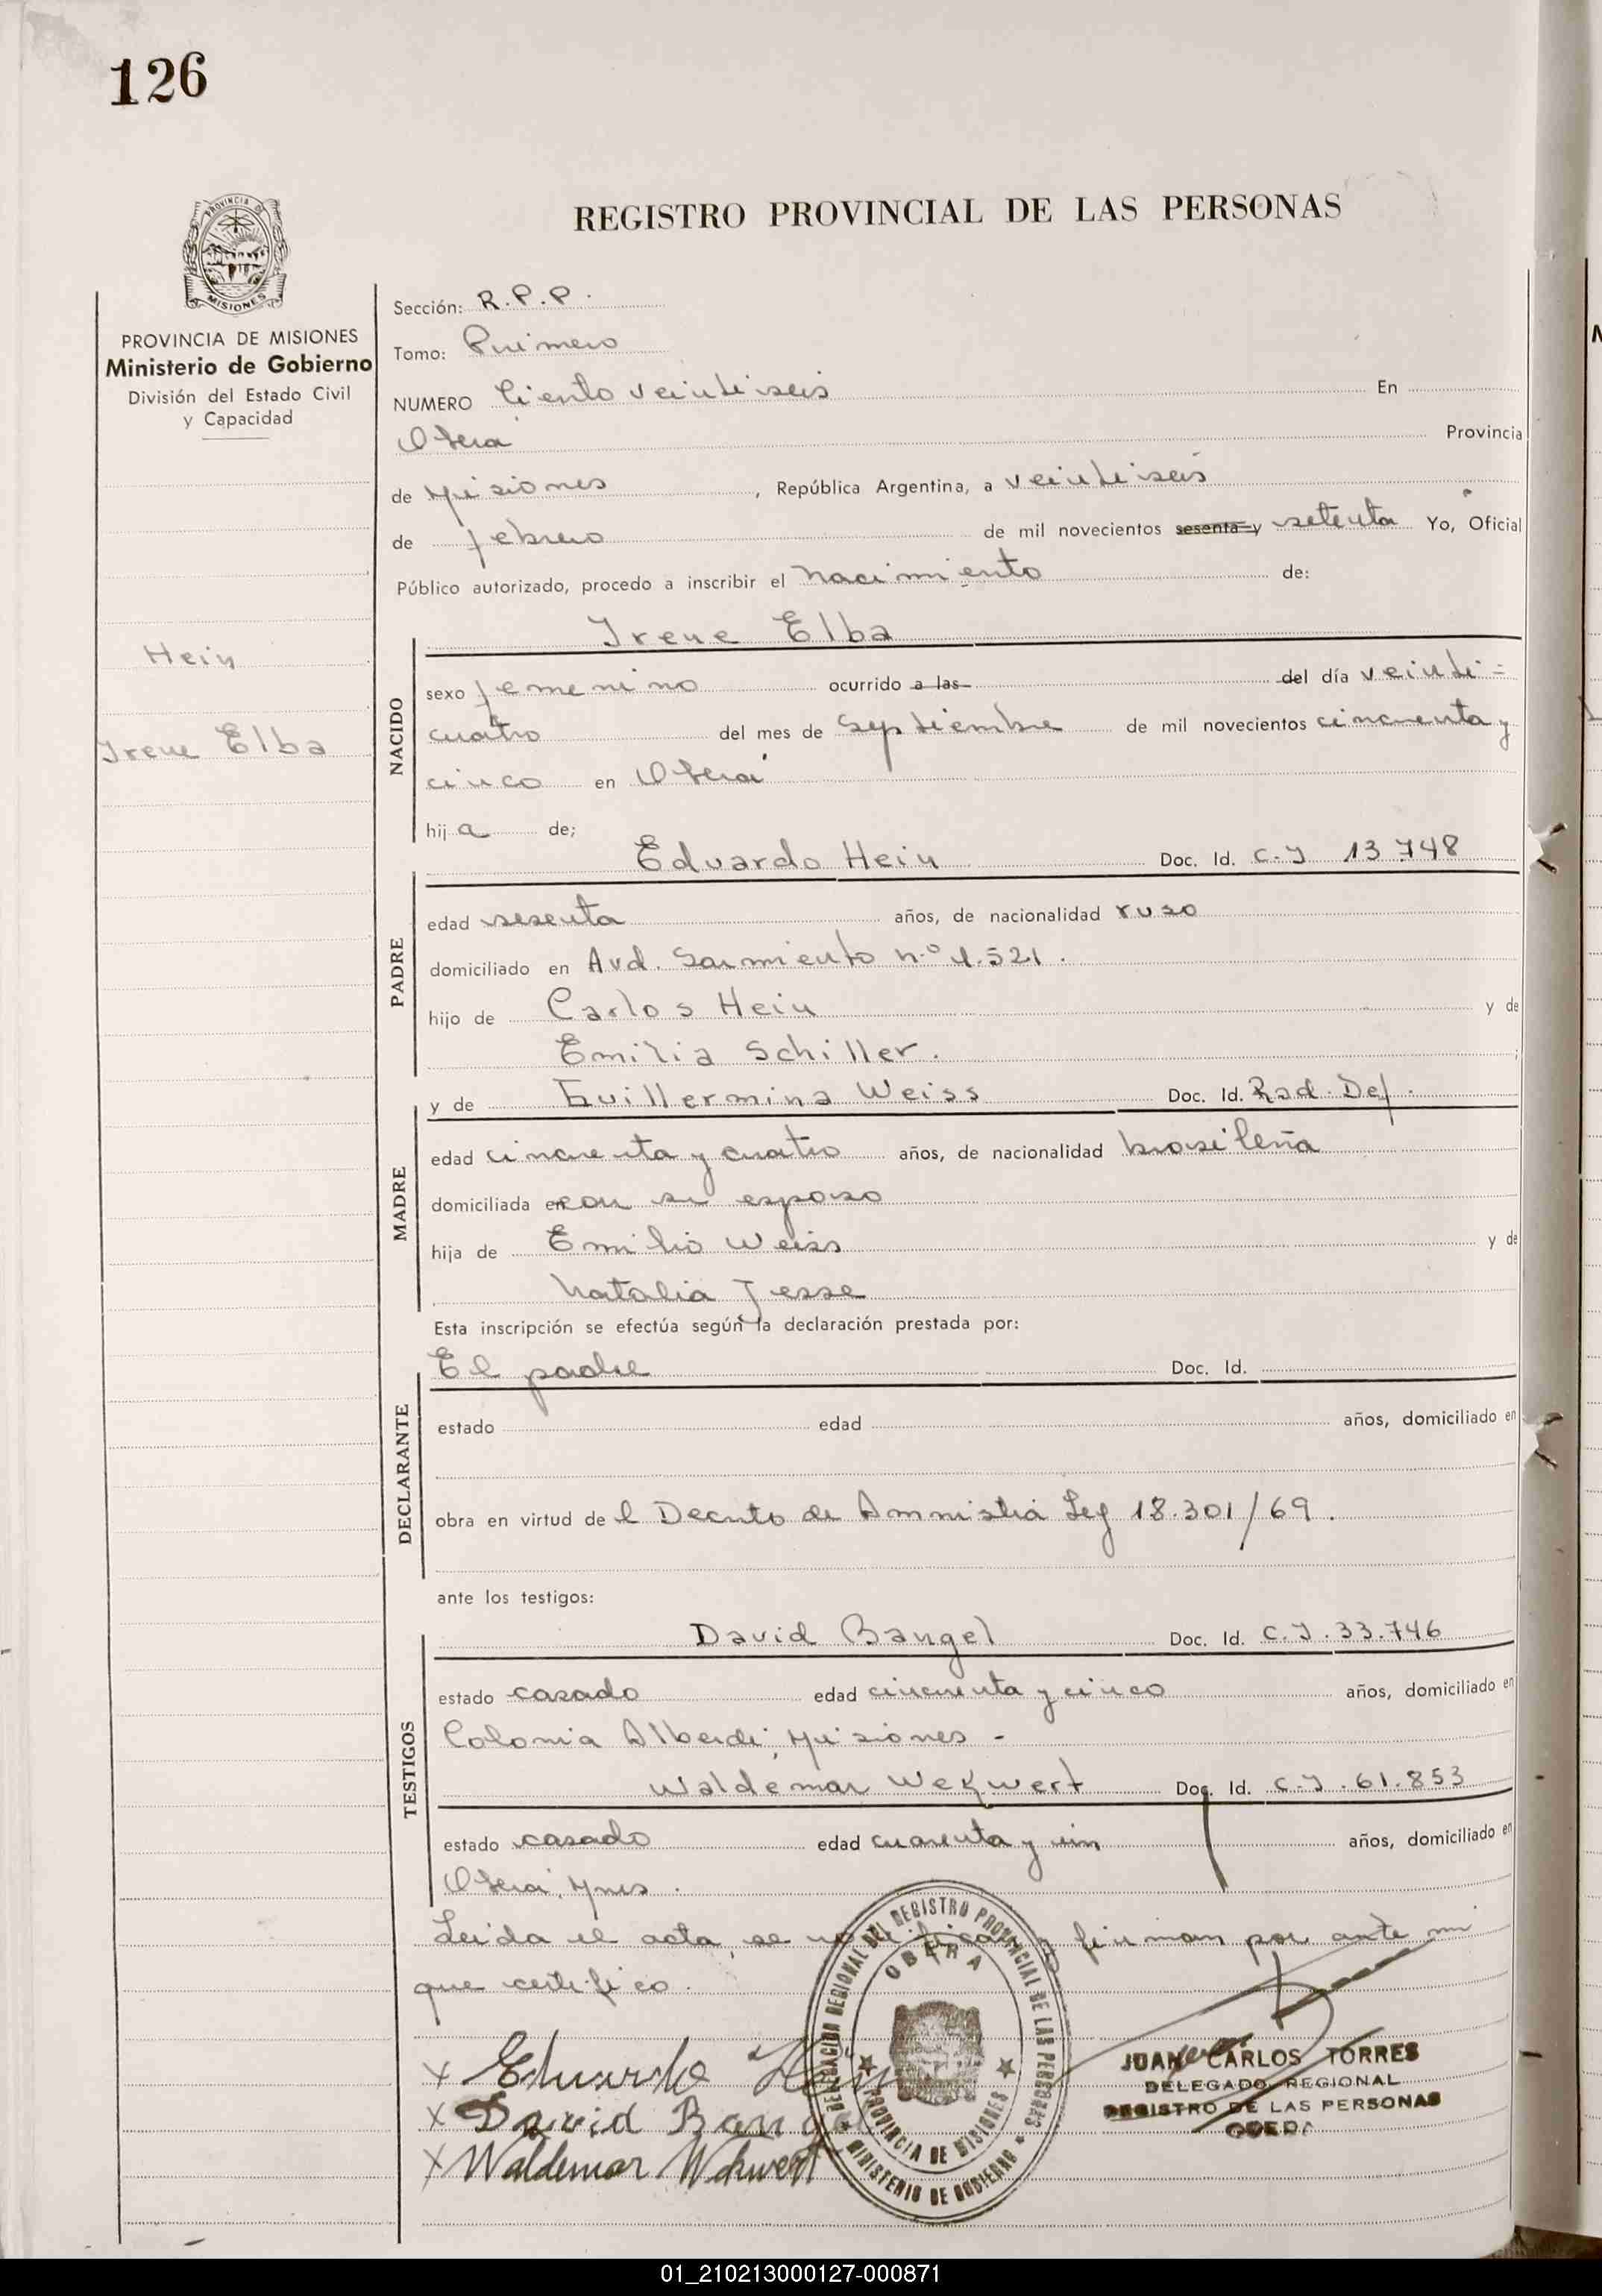 126
REGISTRO PROVINCIAL DE LAS PERSONAS
PROVINCIA DE MISIONES
MISIONES
PROVINCIA DE MISIONES
Ministerio de Gobierno
División del Estado Civil
y Capacidad
Hein
Irene Elba
Sección: R.P.P.
Tomo: Primero
NUMERO Ciento veintiseis En
Oberá Provincia
de Misiones, República Argentina, a veintiseis
de febrero de mil novecientos sesenta y setenta Yo, Oficial
Público autorizado, procedo a inscribir el nacimiento de:
NACIDO
Irene Elba
sexo femenino ocurrido a las del día veinti=
cuatro del mes de septiembre de mil novecientos cincuenta y
cinco en Oberá
hija de;
PADRE
Eduardo Hein Doc. Id. C.I 13.748
edad sesenta años, de nacionalidad ruso
domiciliado en Avd. Sarmiento n.º 1.521.
hijo de Carlos Hein y de
Emilia Schiller.
MADRE
y de Guillermina Weiss Doc. Id. Rad. Def.
edad cincuenta y cuatro años, de nacionalidad brasileña
domiciliada en con su esposo
hija de Emilio Weiss y de
Natalia Jesse
Esta inscripción se efectúa según la declaración prestada por:
DECLARANTE
El padre Doc. Id.
estado edad años, domiciliado en
obra en virtud de l Decreto de Ammistia Ley 18.301/69.
ante los testigos:
TESTIGOS
David Bangel Doc. Id. C.I. 33.746
estado casado edad cincuenta y cinco años, domiciliado en
Colonia Alberdi, Misiones -
Waldemar Wekwert Doc. Id. C.I. 61.853
estado casado edad cuarenta y un años, domiciliado en
Oberá, Mnes.
Leida el acta, se notifican y firman por ante mi
que certifico.
x Eduardo Hein
x David Bangel
x Waldemar Wekwert
DELEGACION REGIONAL DEL REGISTRO PROVINCIAL DE LAS PERSONAS
OBERA
PROVINCIA DE MISIONES
MINISTERIO DE GOBIERNO
JUAN CARLOS TORRES
DELEGADO REGIONAL
REGISTRO DE LAS PERSONAS
OBERA
01_210213000127-000871